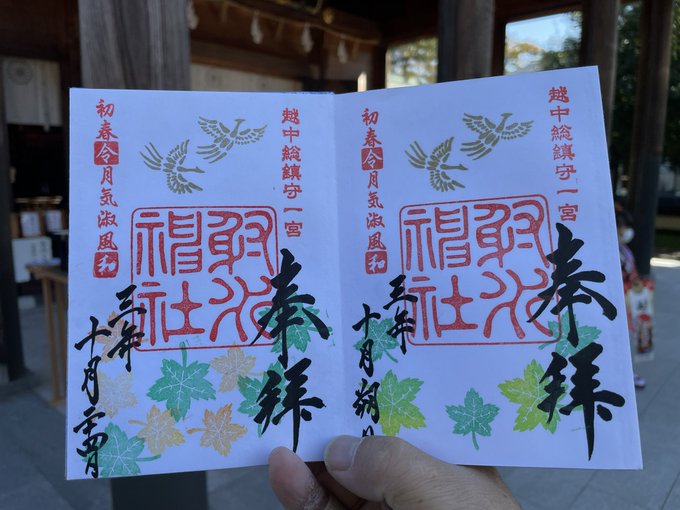 越中総鎮守一宮
奉拝
射水
神社
初春令月気淑風和
三年
十月朔日
越中総鎮守一宮
奉拝
射水
神社
初春令月気淑風和
三年
十月二十四日